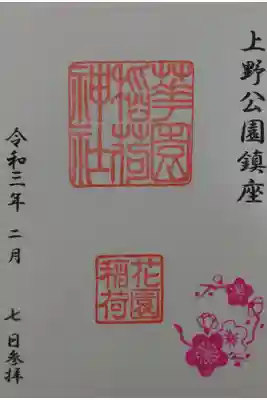 上野公園鎮座
華園
稲荷
神社
花園
稲荷
令和三年 二月 七日参拝